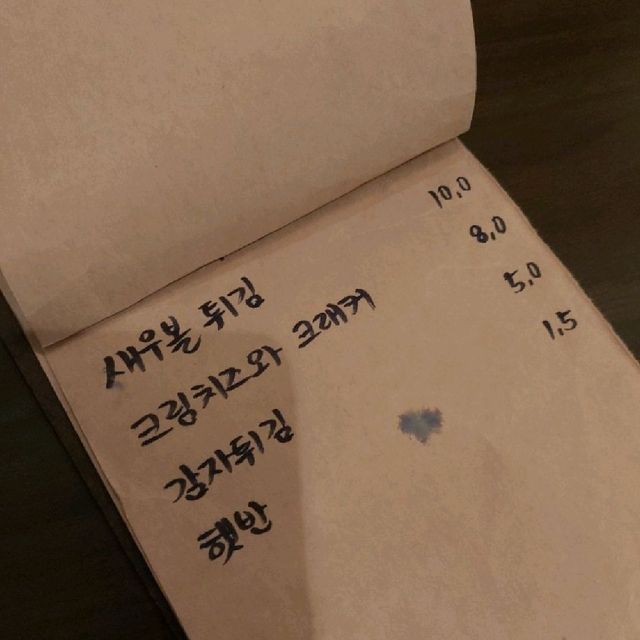 새우볼 튀김 10.0
크림치즈와 크래커 8.0
감자튀김 5.0
햇반 1.5